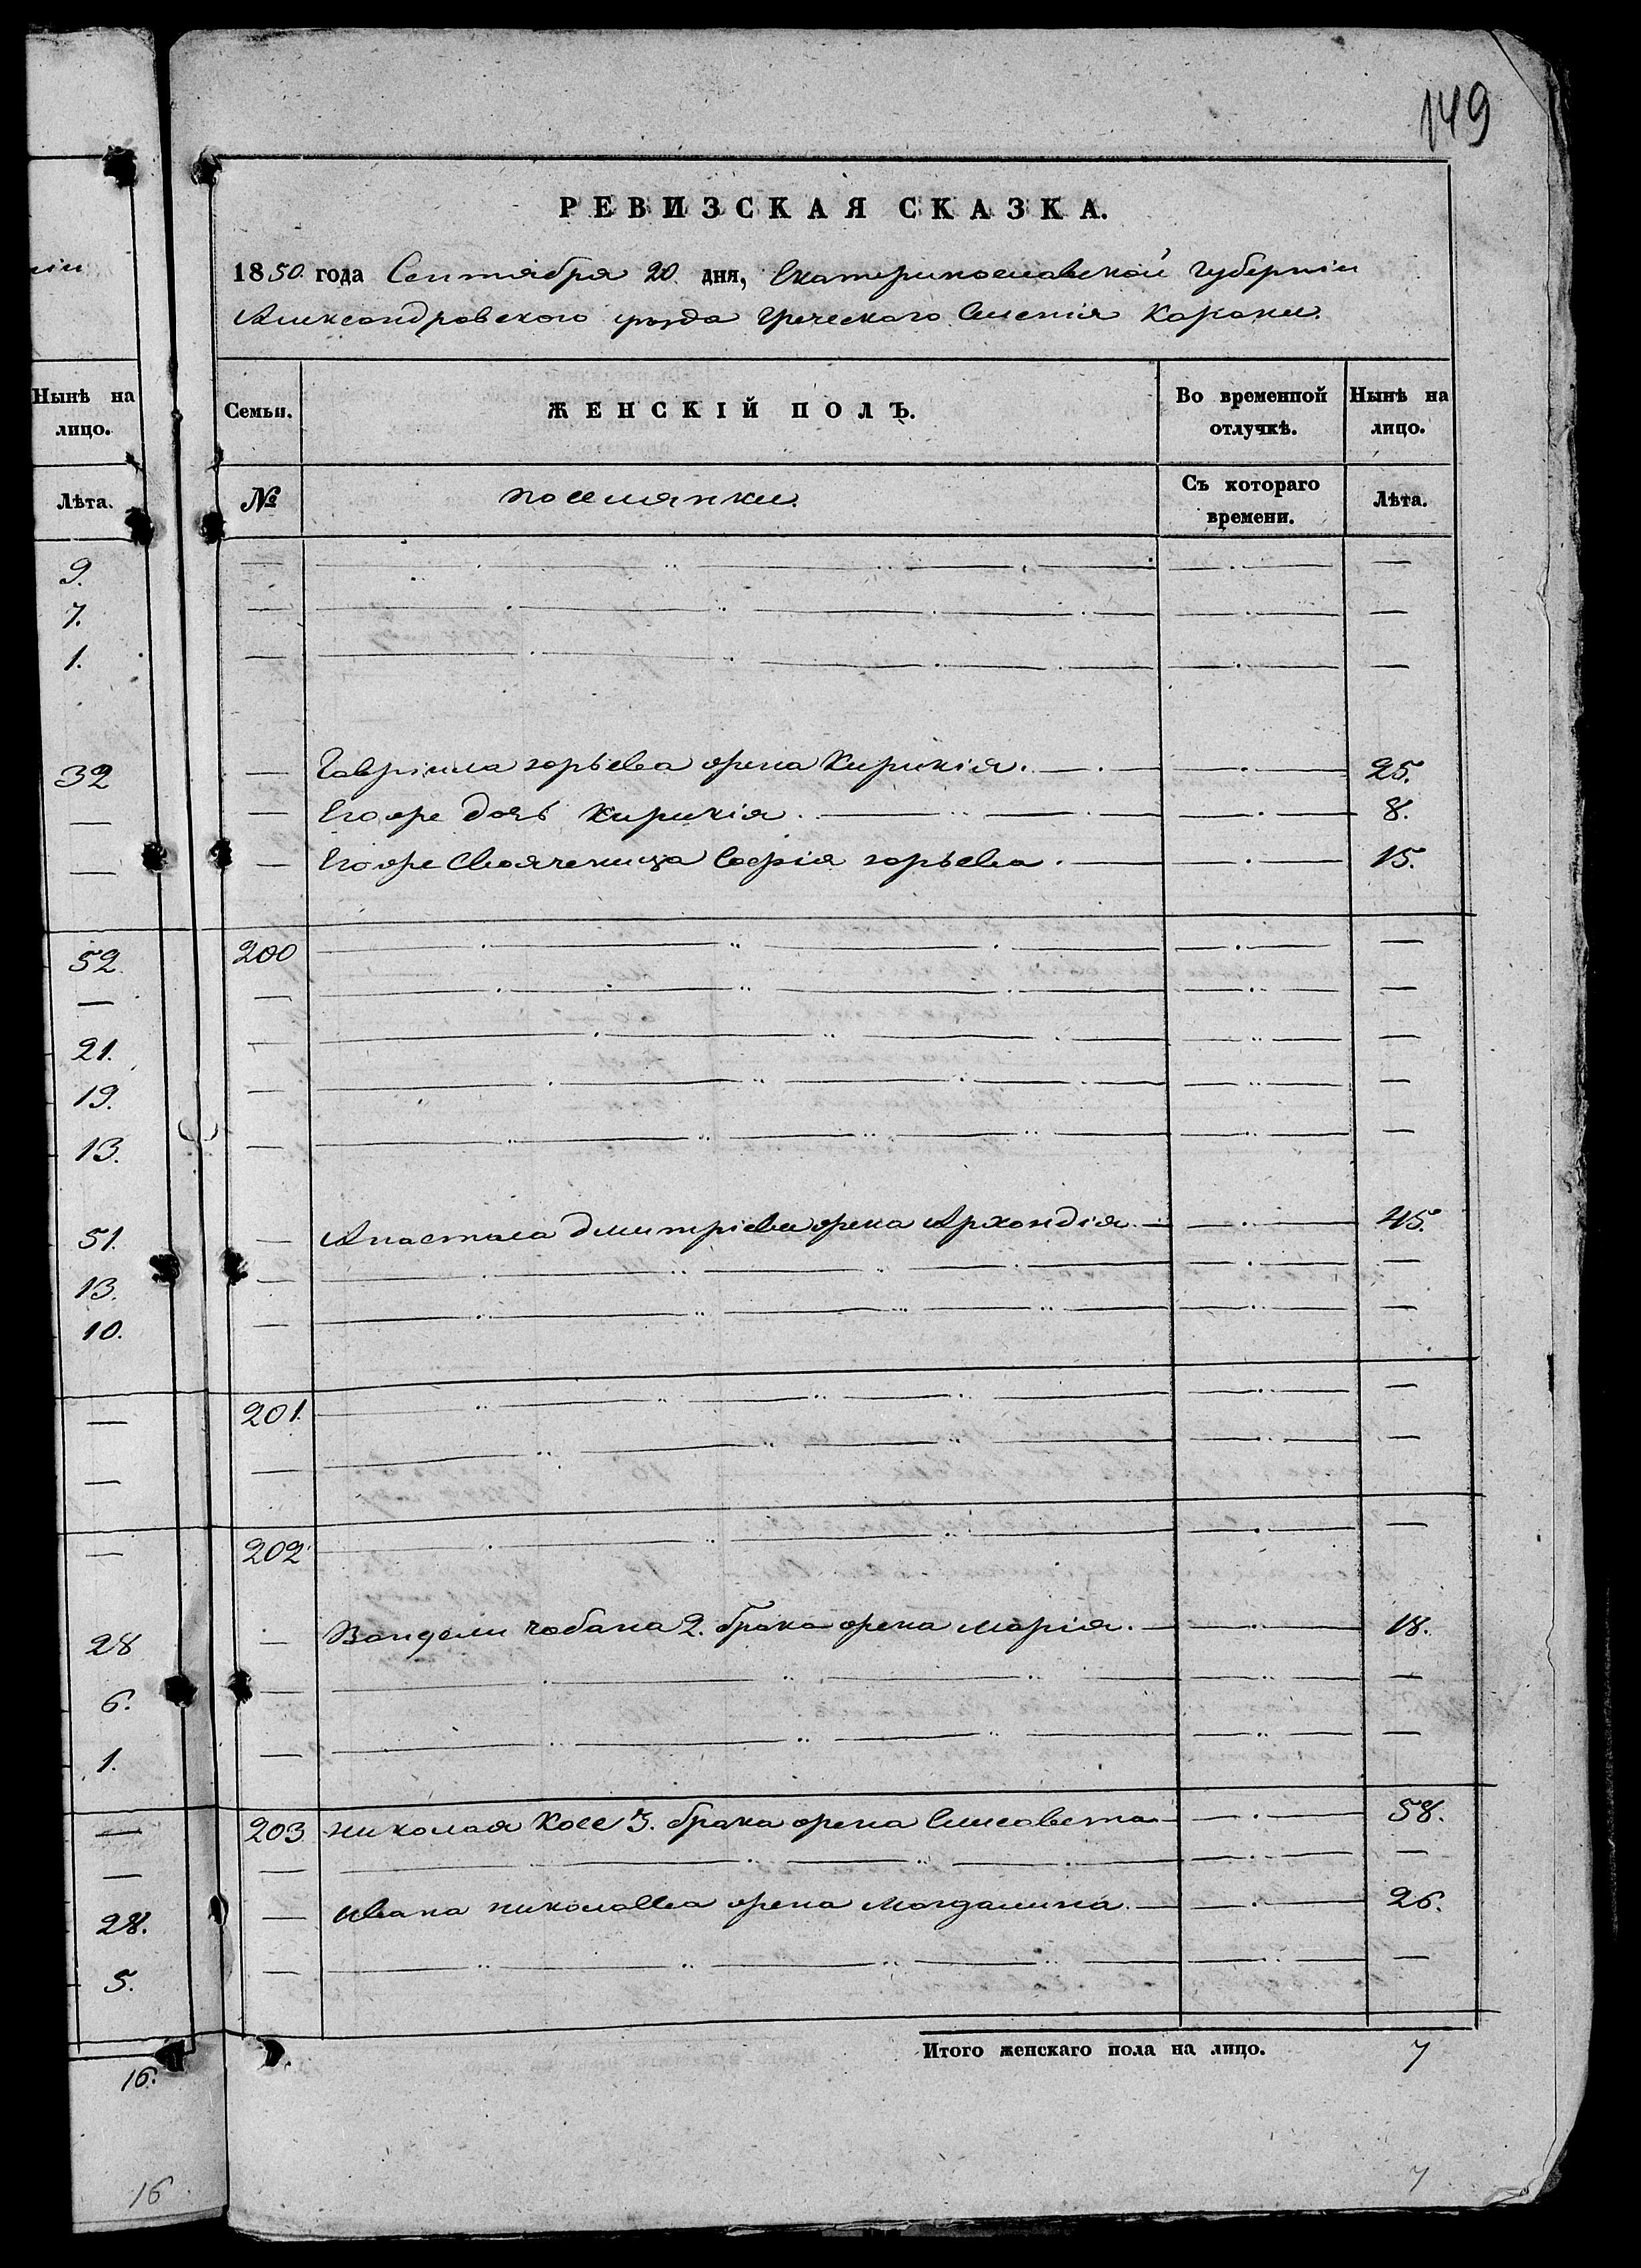 149
РЕВИЗСКАЯ СКАЗКА.
1850. года Сентября 20. дня, Екатеринославской Губерніи
Александровского уезда Греческаго Селенія Карани.
Нынѣ на лицо.
Семьи.
ЖЕНСКІЙ ПОЛЪ.
Во временной отлучкѣ.
Нынѣ на лицо.
Лѣта.
№
поселянки.
Съ котораго времени.
Лѣта.
9.
7.
1.
32 — Гавріила юрьева жена Кирикія. — . — — . — 25.
— — Его же дочь Кирикія. — — . — 8.
— — Его же Свояченица Софія юрьева. — — . — 15.
52. 200
—
21.
19.
13.
51. — Анастаса Дмитріева жена Архондія. — — . — 45.
13.
10.
— 201.
—
— 202.
28 — Вангели чобана 2. брака жена Марія. — — . — 18.
6.
1.
— 203 Николая Косе 3. брака жена Елисавета — — . — 58.
—
28. — Ивана николаева жена Магдалина. — — . — 26.
5.
Итого женскаго пола на лицо. 7
16.
16
7